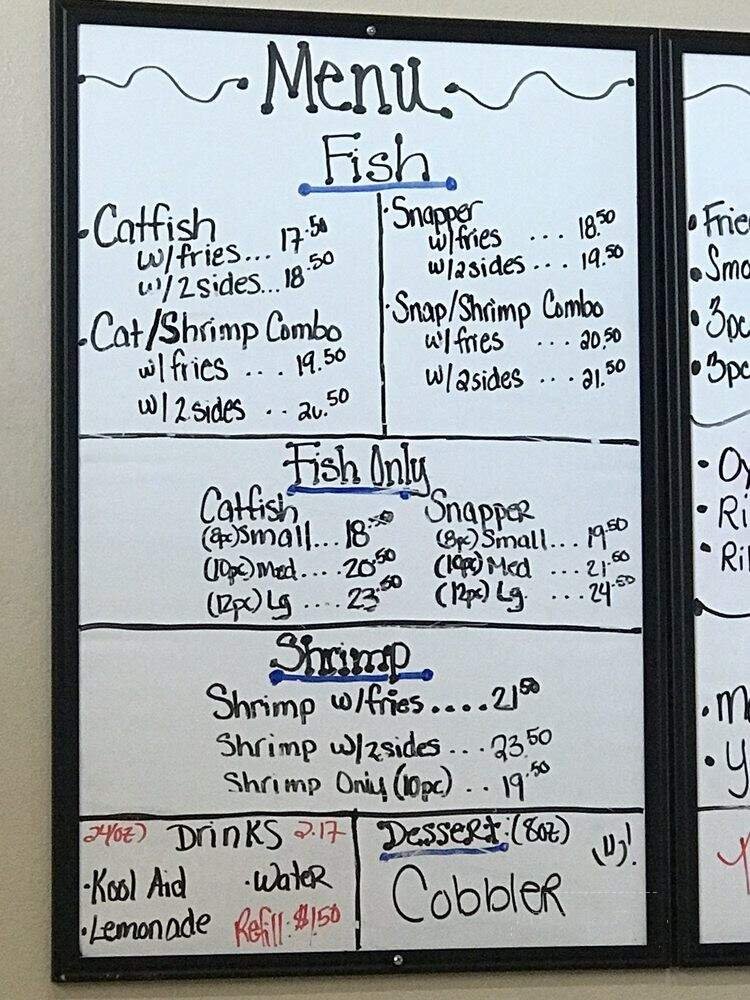 Menu
Fish
• Catfish
w/fries... 17.50
w/2sides... 18.50
• Cat/Shrimp Combo
w/fries .... 19.50
w/2sides ..
• Snapper
w/fries ... 18.50
w/2sides ... 19.50
• Snap/Shrimp Combo
w/fries ... 20.50
w/2sides ... 21.50
Fish Only
Catfish
(8pc)Small... 18.50
(10pc)Med.... 20.50
(12pc)Lg .... 23.50
Snapper
(8pc)Small... 19.50
(10pc)Med ... 21.50
(12pc)Lg. ... 24.50
Shrimp
Shrimp w/fries.... 21.50
Shrimp w/2sides... 23.50
Shrimp Only (10pc) .. 19.50
24oz) Drinks 2.17
• Kool Aid
• Water
• Lemonade
Refill: $1.50
Dessert: (8oz)
Cobbler
• Frie
• Smo
• 3pc
• 3pc
• Oy
• Ri
• Ri